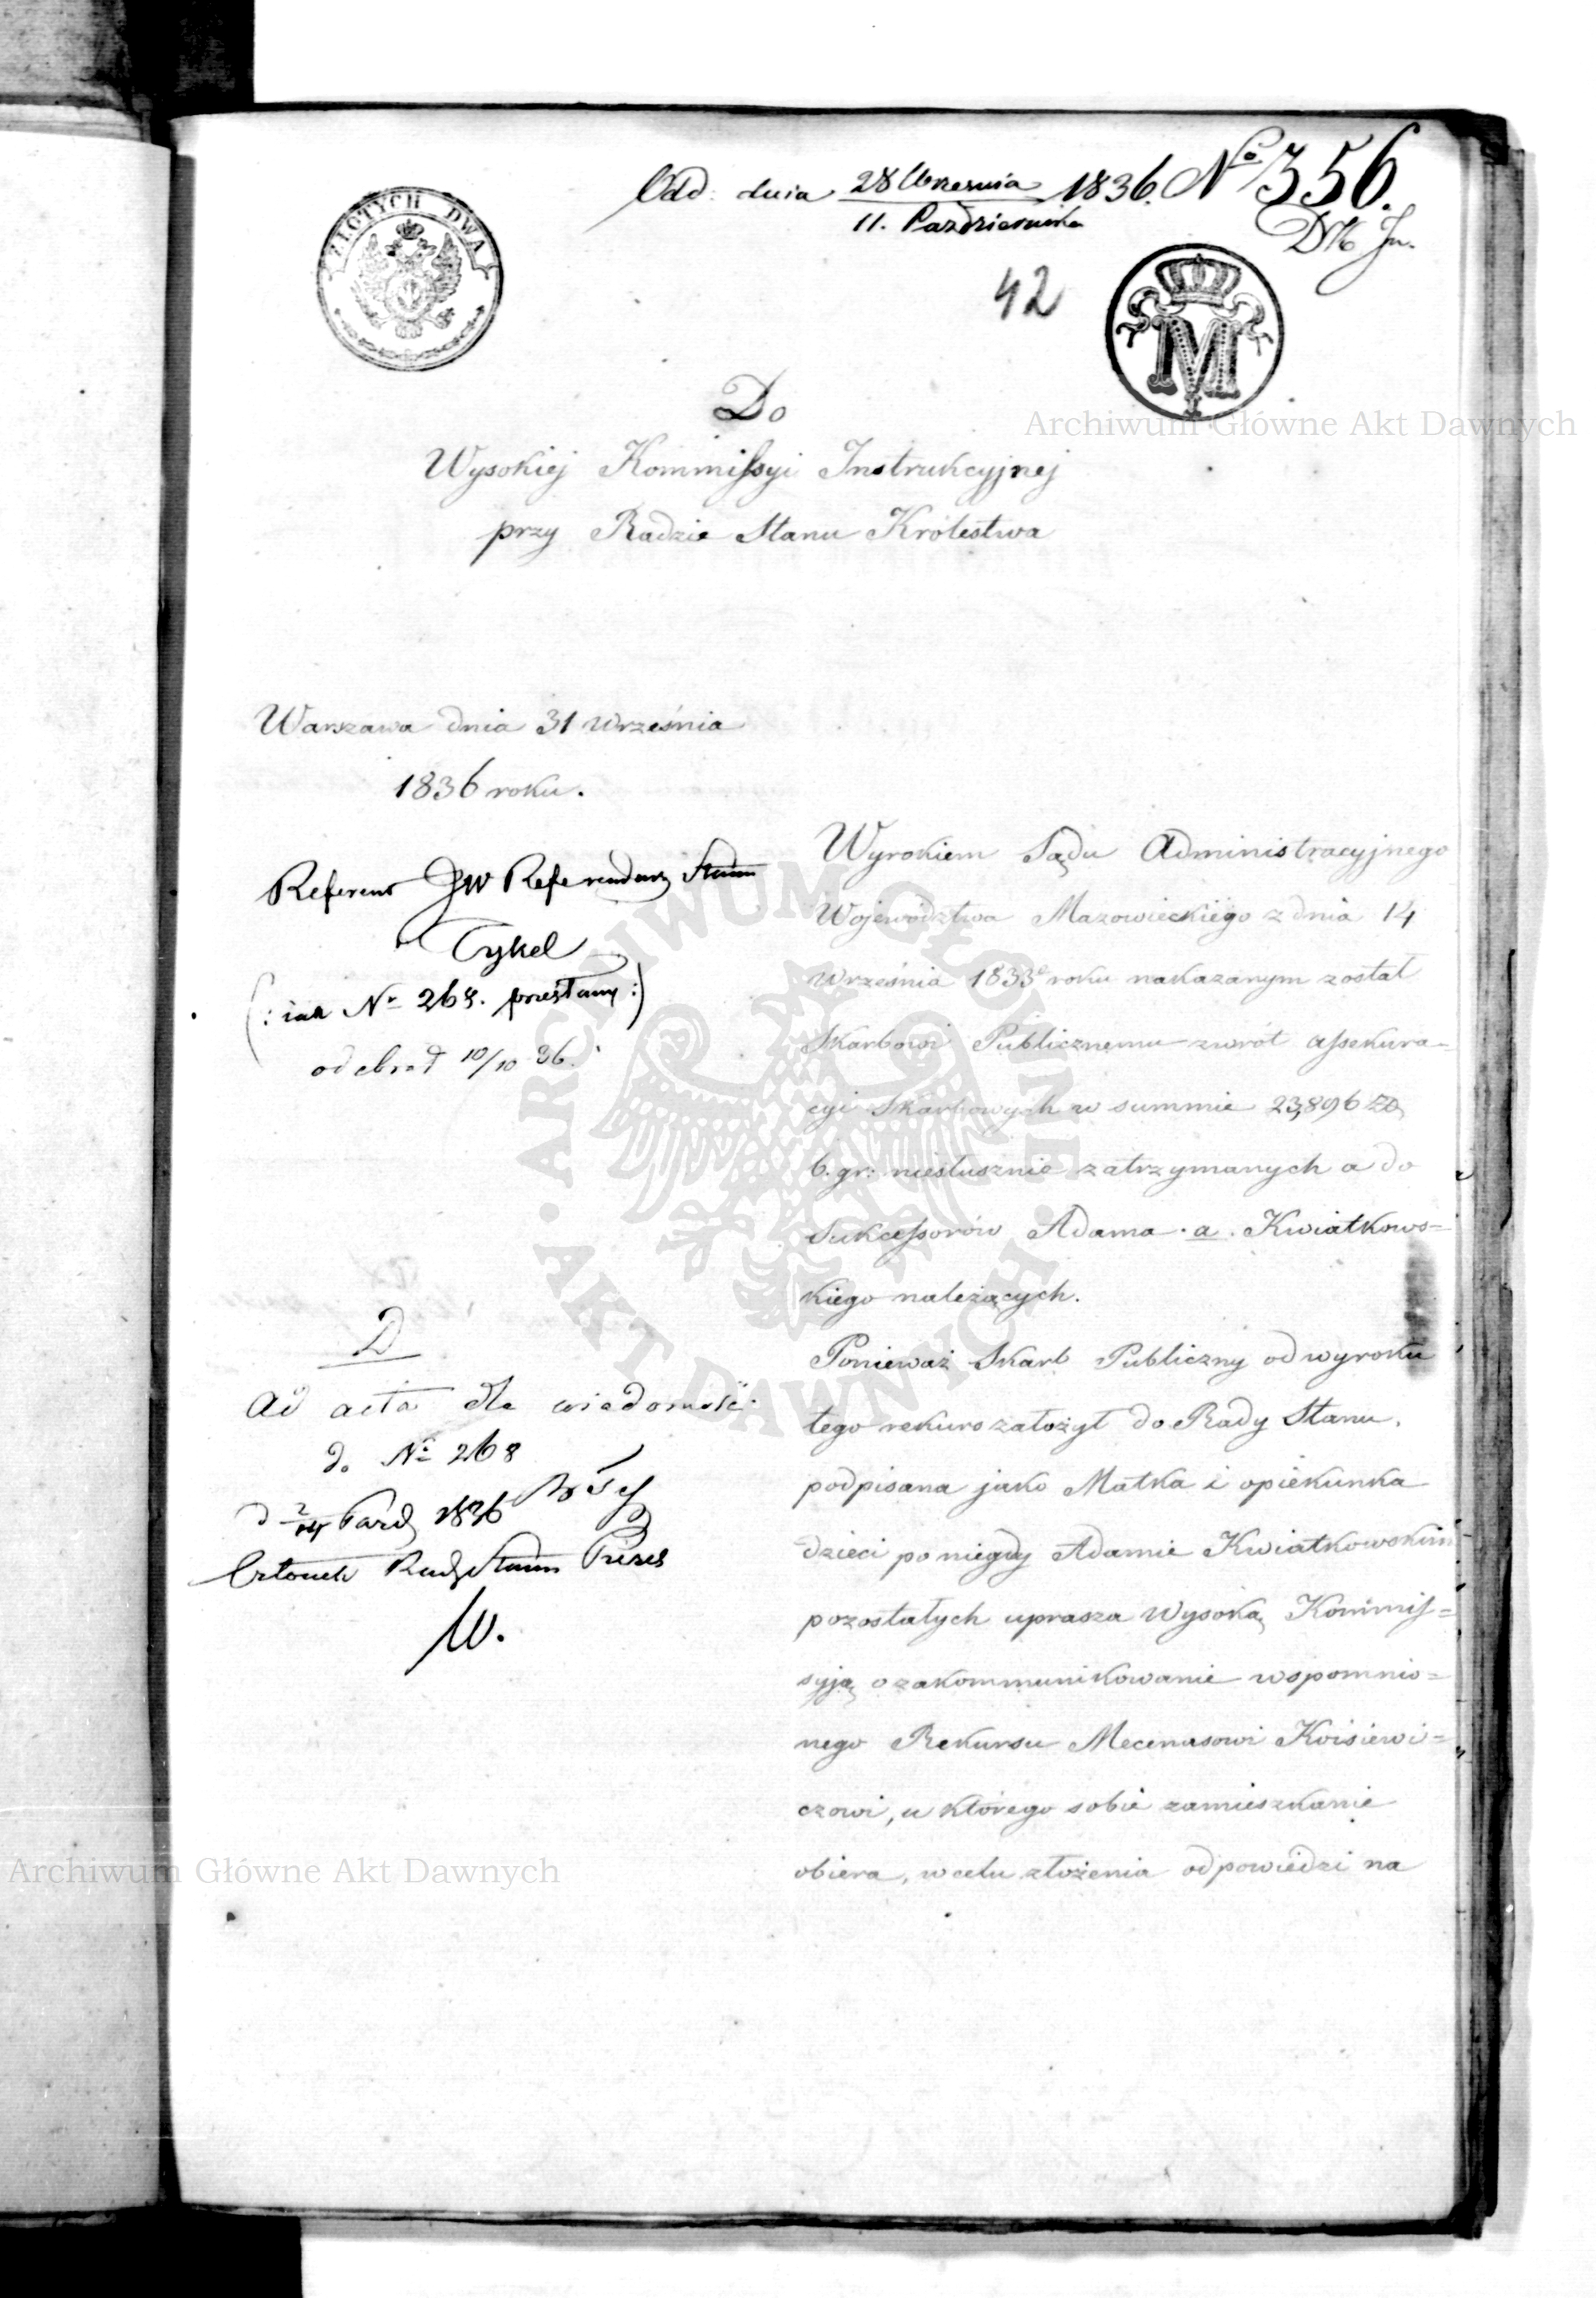 Odd: dnia 28 Września 1836. No 356.
11. Października
ZŁOTYCH DWA
42
M
Do
Archiwum Główne Akt Dawnych
Wysokiej Kommissyi Instrukcyjnej
przy Radzie Stanu Królestwa
Warszawa dnia 31 Września
1836 roku.
Referent JW Referendarz Stanu
Tykel
(: iak Nr 268. przesłany :)
odebrał 10/10 36.
D
Ad acta dla wiadomości
do Nr 268
Paźd 1836
Członek Rady Stanu Prezes
W.
Wyrokiem Sądu Administracyjnego
Województwa Mazowieckiego z dnia 14
Września 1833 roku nakazanym został
Skarbowi Publicznemu zwrót assekura=
cyi Skarbowych w summie 23,896 Zł
6. gr: niesłusznie zatrzymanych a do
Sukcessorów Adama . a . Kwiatkows=
kiego należących.
Ponieważ Skarb Publiczny od wyroku
tego rekurs założył do Rady Stanu,
podpisana jako Matka i opiekunka
dzieci po niegdy Adamie Kwiatkowskim
pozostałych uprasza Wysoką Kommis=
syją o zakommunikowanie wspomnio=
nego Rekursu Mecenasowi Kwisiewi=
czowi, u którego sobie zamieszkanie
obiera, w celu złożenia odpowiedzi na
ARCHIWUM GŁÓWNE · AKT DAWNYCH ·
Archiwum Główne Akt Dawnych